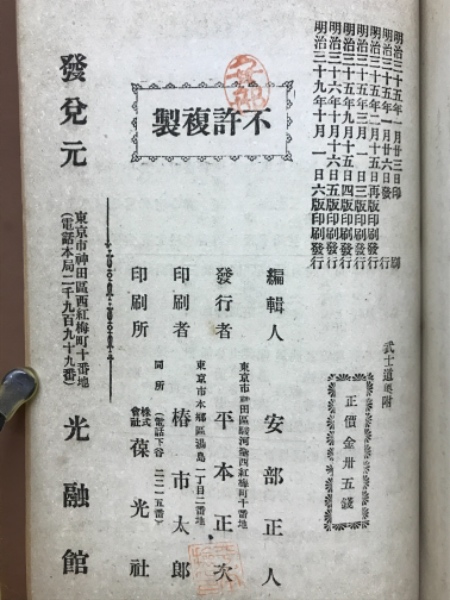 明治三十五年一月廿三日印刷
明治三十五年一月廿六日發行
明治三十五年二月十五日再版印刷發行
明治三十五年三月一日三版印刷發行
明治三十五年九月十五日四版印刷發行
明治三十六年十月十六日五版印刷發行
明治三十九年十月一日六版印刷發行
不許複製
武士道奧附
正價金卅五錢
編輯人 安部正人
東京市神田區駿河臺西紅梅町十番地
發行者 平本正次
東京市本鄉區湯島一丁目二番地
印刷者 椿市太郎
同所
(電話下谷二二一五番)
印刷所 株式會社 葆光社
發兌元 光融館
東京市神田區西紅梅町十番地
(電話本局二千九百九十九番)